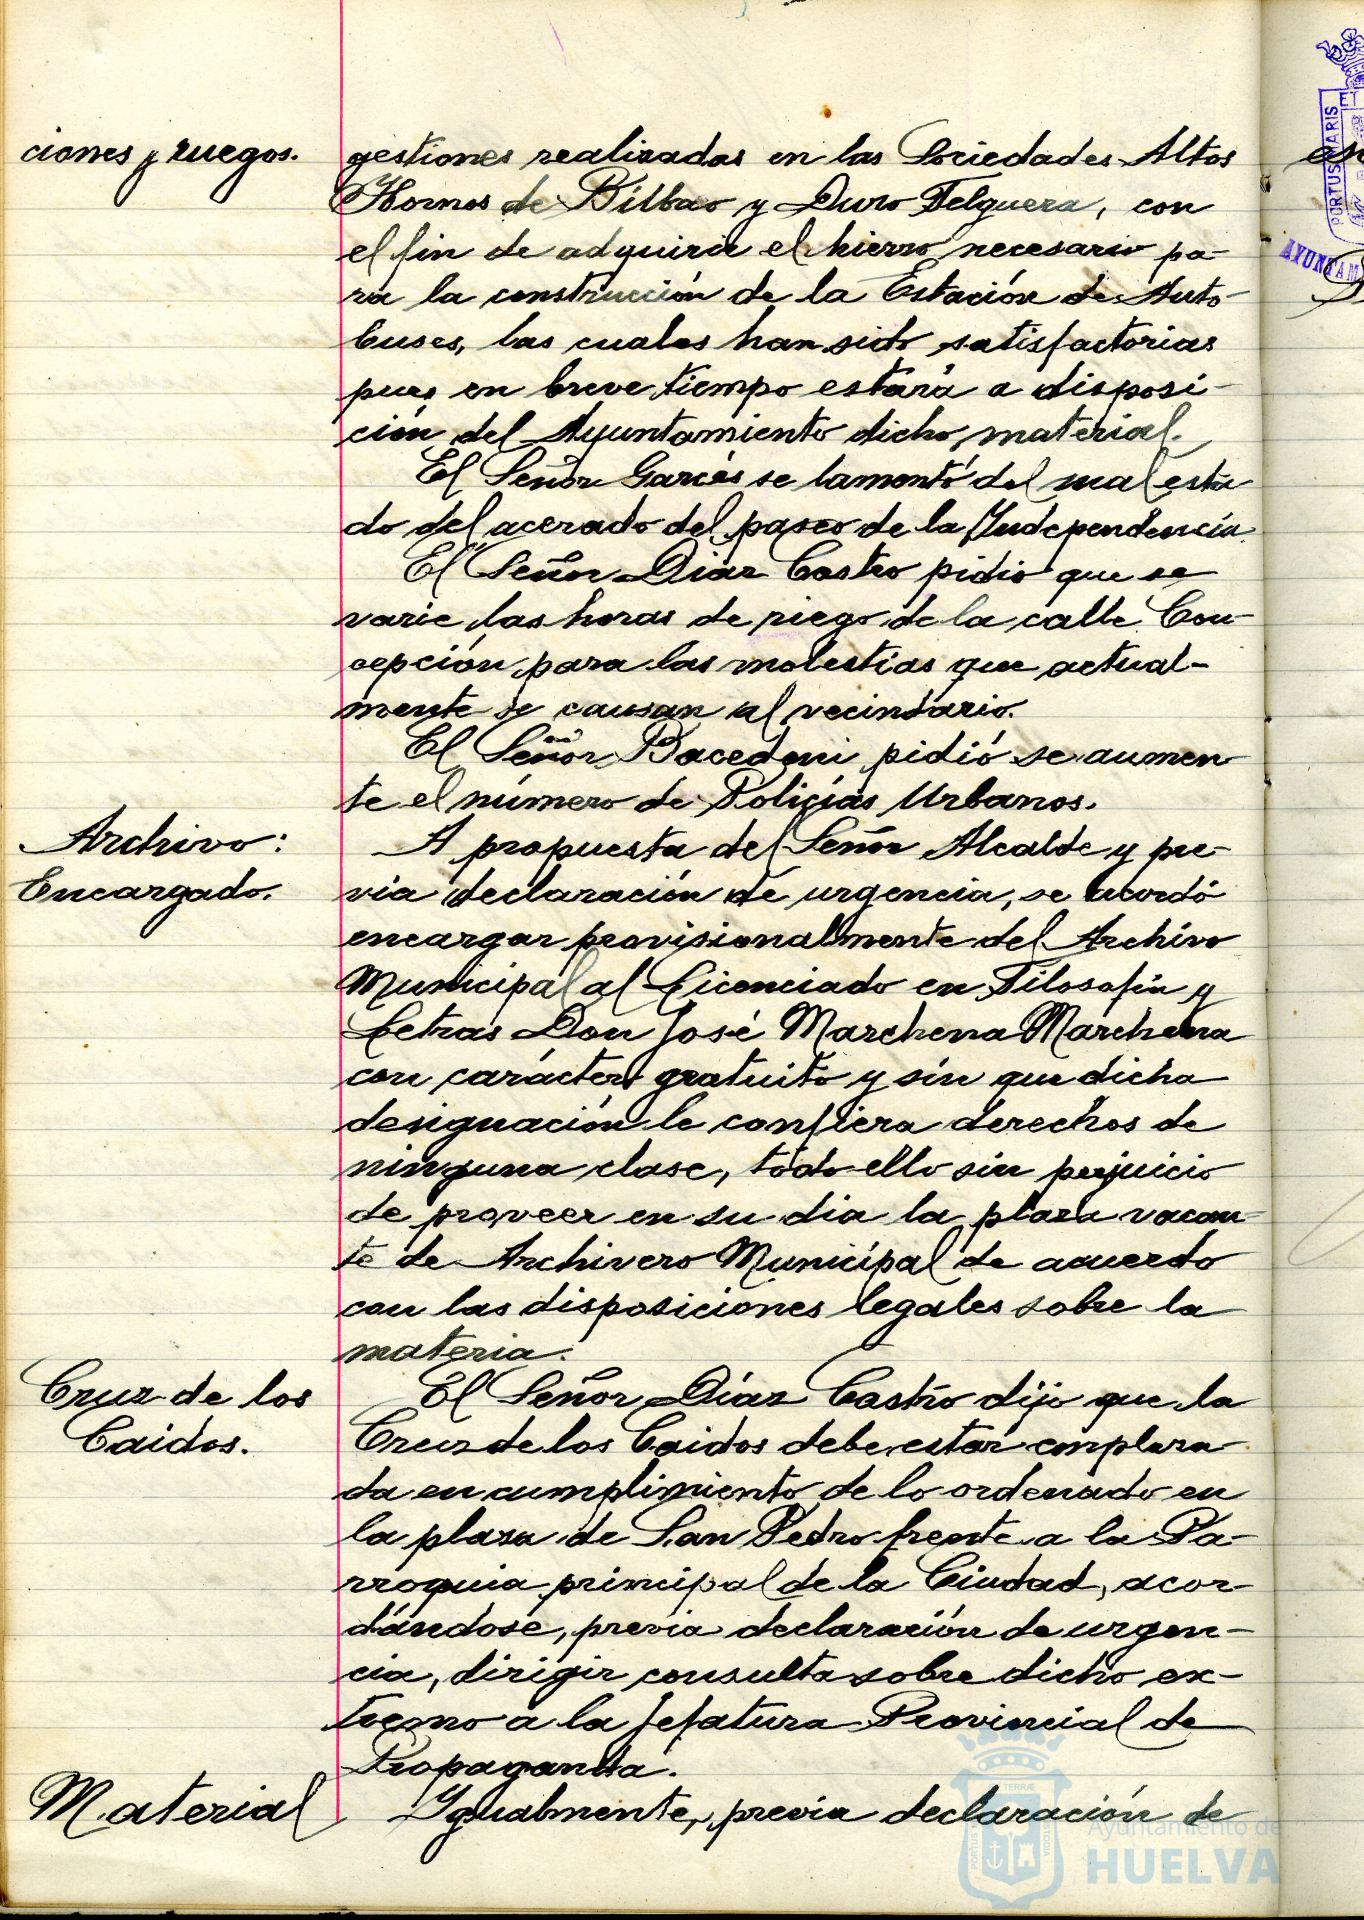 ciones y ruegos.
gestiones realizadas en las Sociedades Altos
Hornos de Bilbao y Duro Felguera, con
el fin de adquirir el hierro necesario pa-
ra la construcción de la Estación de Auto-
buses, las cuales han sido satisfactorias
pues en breve tiempo estará a disposi-
ción del Ayuntamiento dicho material.
El Señor Garcés se lamentó del mal esta-
do del acerado del paseo de la Independencia.
El Señor Díaz Castro pidió que se
varie las horas de riego de la calle Con-
cepción para las molestias que actual-
mente se causan al vecindario.
El Señor Bacedoni pidió se aumen-
te el número de Policías Urbanos.
Archivo:
Encargado.
A propuesta del Señor Alcalde y pre-
via declaración de urgencia, se acordó
encargar provisionalmente del Archivo
Municipal al Licenciado en Filosofía y
Letras Don José Marchena Marchena
con carácter gratuito y sin que dicha
designación le confiera derechos de
ninguna clase, todo ello sin perjuicio
de proveer en su dia la plaza vacan-
te de Archivero Municipal de acuerdo
con las disposiciones legales sobre la
materia.
Cruz de los
Caidos.
El Señor Díaz Castro dijo que la
Cruz de los Caidos debe estar emplaza
da en cumplimiento de lo ordenado en
la plaza de San Pedro frente a la Pa-
rroquia principal de la Ciudad, acor-
dándose, previa declaración de urgen-
cia, dirigir consulta sobre dicho ex-
tremo a la Jefatura Provincial de
Propaganda.
Material
Ygualmente, previa declaración de
PORTUS MARIS ET
AYUNTAM
Ayuntamiento de
HUELVA